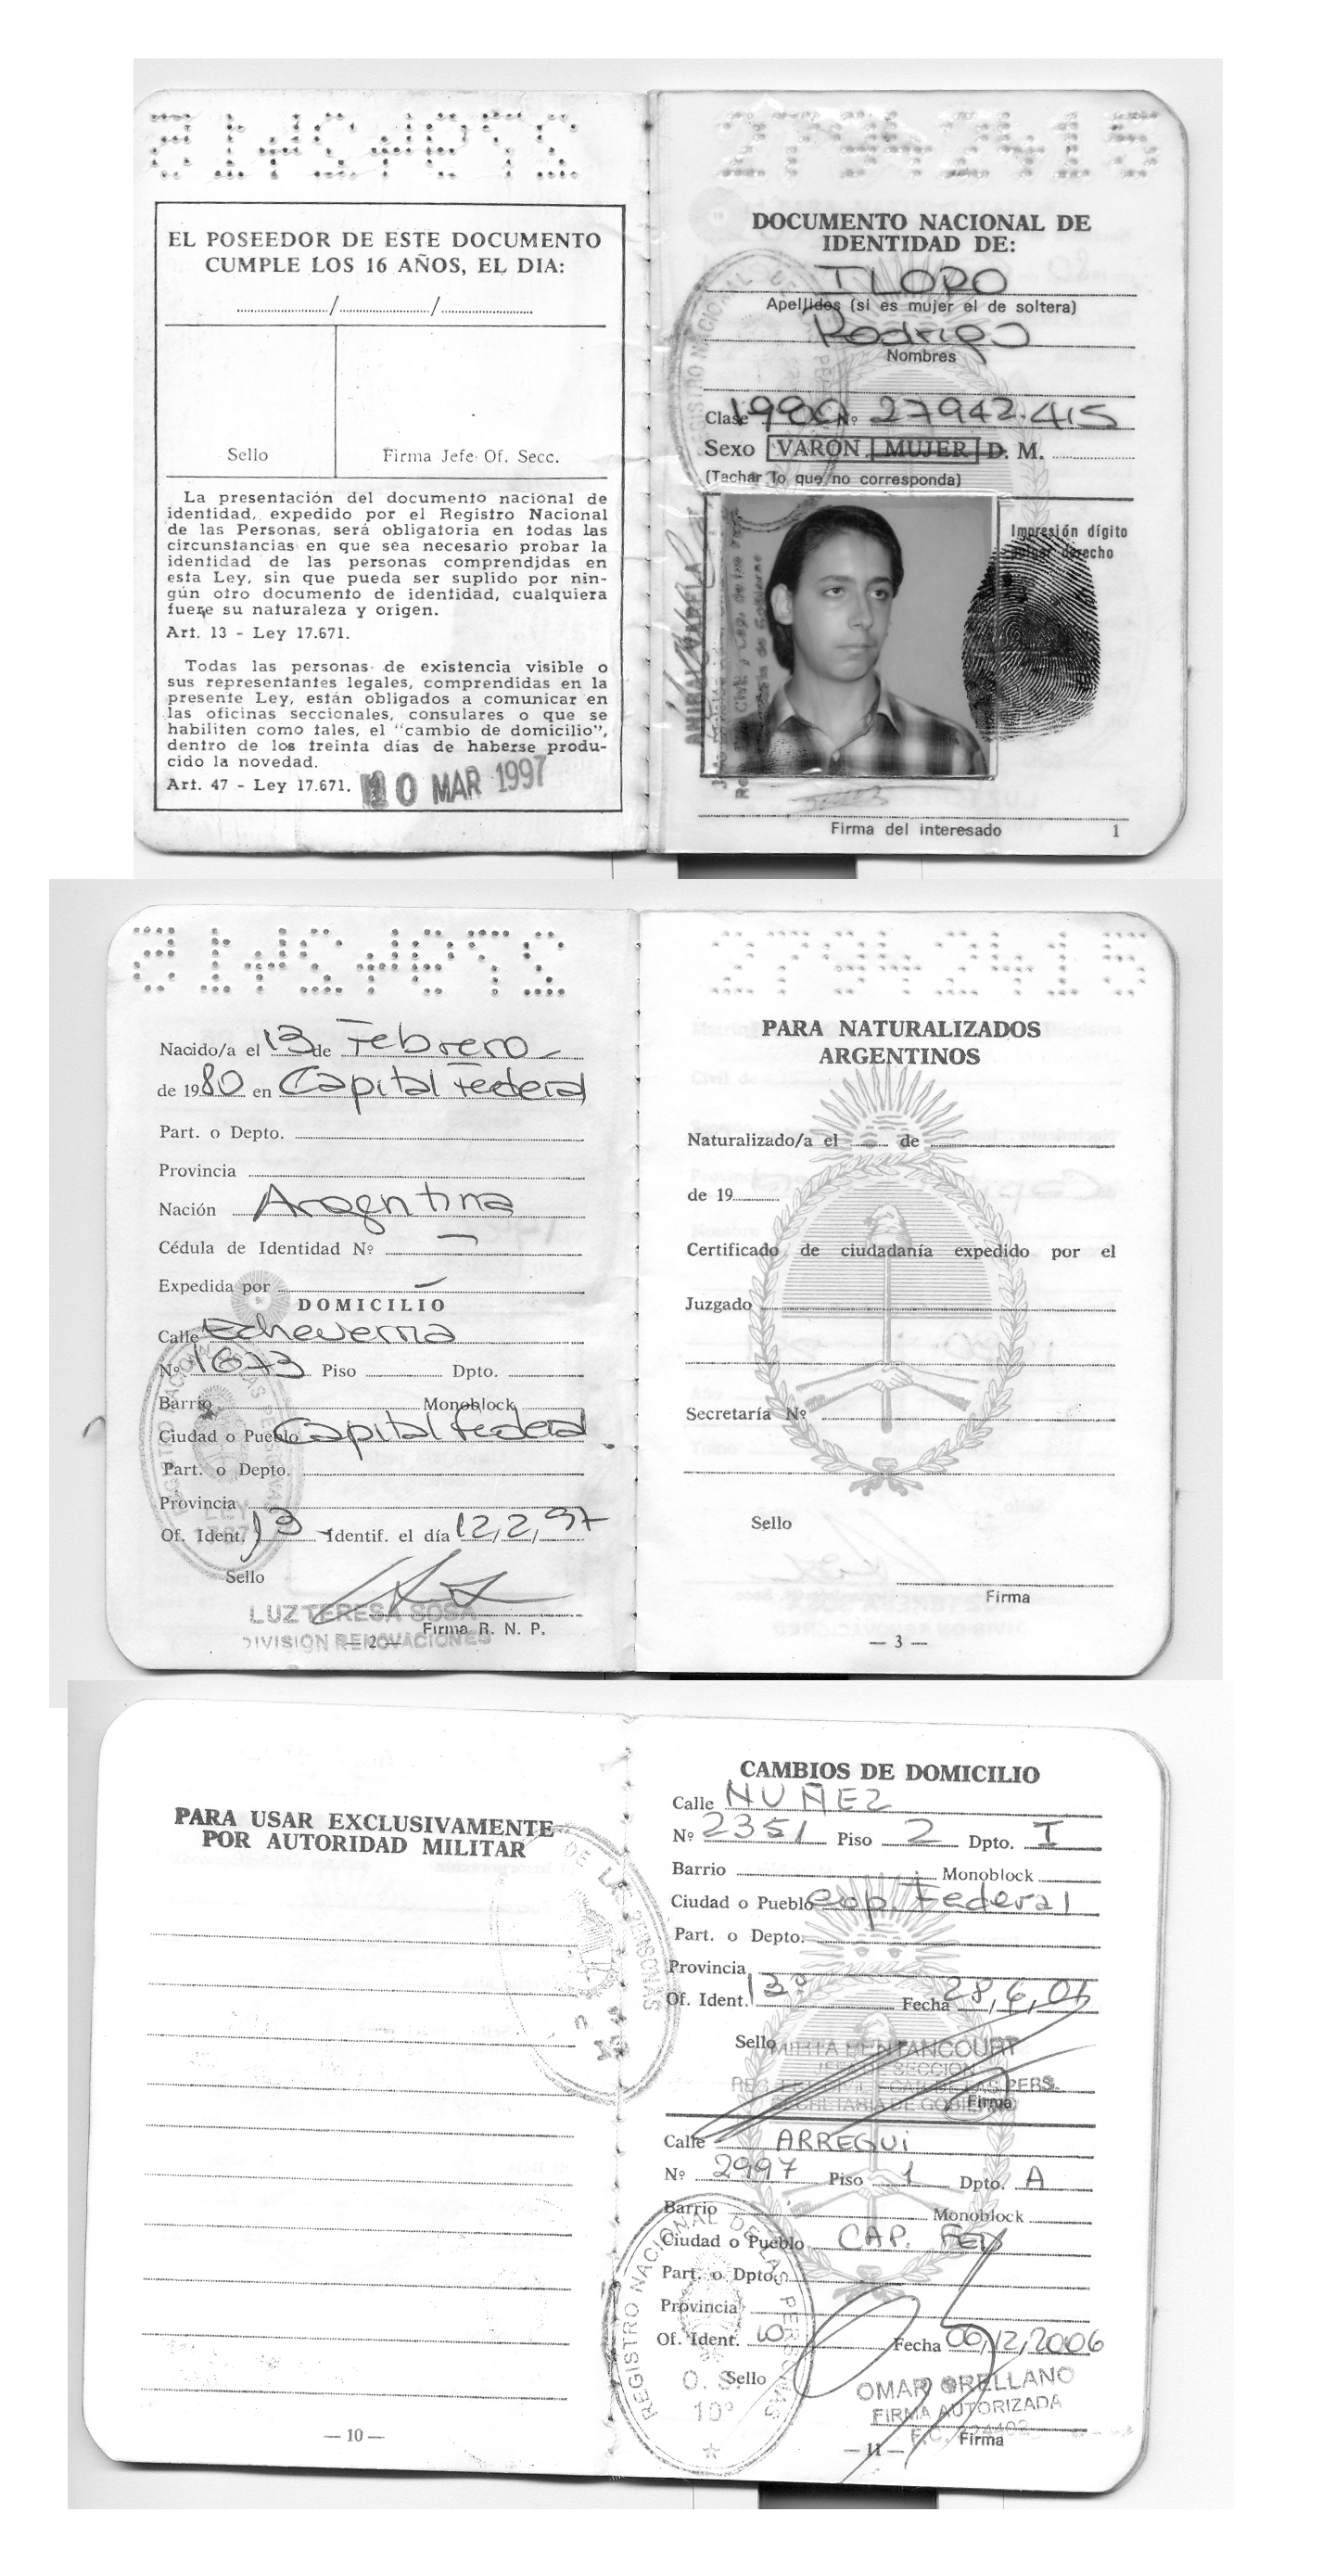 27942415
27942415
EL POSEEDOR DE ESTE DOCUMENTO
CUMPLE LOS 16 AÑOS, EL DIA:
/ /
Sello
Firma Jefe Of. Secc.
La presentación del documento nacional de
identidad, expedido por el Registro Nacional
de las Personas, será obligatoria en todas las
circunstancias en que sea necesario probar la
identidad de las personas comprendidas en
esta Ley, sin que pueda ser suplido por nin-
gún otro documento de identidad, cualquiera
fuere su naturaleza y origen.
Art. 13 - Ley 17.671.
Todas las personas de existencia visible o
sus representantes legales, comprendidas en la
presente Ley, están obligados a comunicar en
las oficinas seccionales, consulares o que se
habiliten como tales, el "cambio de domicilio",
dentro de los treinta días de haberse produ-
cido la novedad.
Art. 47 - Ley 17.671.
10 MAR 1997
DOCUMENTO NACIONAL DE
IDENTIDAD DE:
Apellidos (si es mujer el de soltera)
Rodrigo
Nombres
Clase 1980 Nº 27942.415
Sexo VARON MUJER D. M.
(Tachar lo que no corresponda)
Impresión dígito
pulgar derecho
Firma del interesado
1
27942415
27942415
Nacido/a el 13 de Febrero
de 1980 en Capital Federal
Part. o Depto.
Provincia
Nación Argentina
Cédula de Identidad Nº —
Expedida por —
DOMICILIO
Calle Echeverria
Nº 1673 Piso Dpto.
Barrio Monoblock
Ciudad o Pueblo Capital Federal
Part. o Depto.
Provincia
Of. Ident. 13 Identif. el día 12/2/97
Sello
LUZ TERESA SOSA
Firma R. N. P.
DIVISION RENOVACIONES
— 2 —
PARA NATURALIZADOS
ARGENTINOS
Naturalizado/a el de
de 19
Certificado de ciudadanía expedido por el
Juzgado
Secretaría Nº
Sello
Firma
— 3 —
PARA USAR EXCLUSIVAMENTE
POR AUTORIDAD MILITAR
— 10 —
CAMBIOS DE DOMICILIO
Calle NUÑEZ
Nº 2351 Piso 2 Dpto. I
Barrio Monoblock
Ciudad o Pueblo Cap Federal
Part. o Depto.
Provincia
Of. Ident. 13º Fecha
Sello
MIRTA BENTANCOURT
SECRETARIA DE GOBIERNO
Firma
Calle ARREGUI
Nº 2997 Piso 1 Dpto. A
Barrio Monoblock
Ciudad o Pueblo CAP. FED
Part. o Dpto.
Provincia
Of. Ident. 10 Fecha 06/12/2006
Sello
REGISTRO NACIONAL DE LAS PERSONAS
O. S.
10º
OMAR ORELLANO
FIRMA AUTORIZADA
Firma
— 11 —